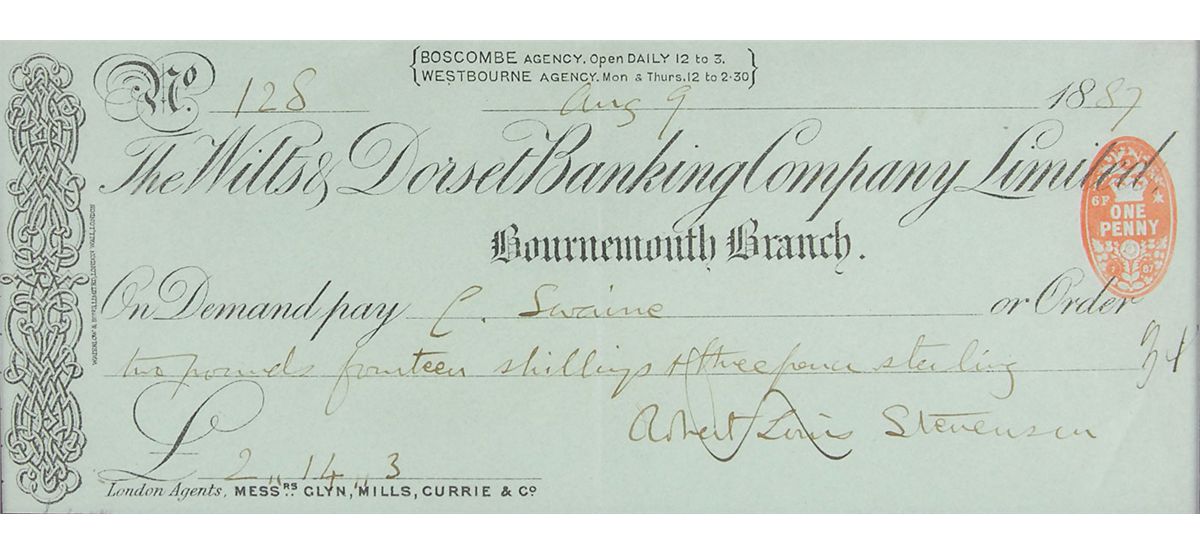 BOSCOMBE AGENCY. Open DAILY 12 to 3.
WESTBOURNE AGENCY. Mon & Thurs. 12 to 2·30
No. 128 Aug 9 1887
The Wilts & Dorset Banking Company Limited,
6F ONE PENNY
Bournemouth Branch.
On Demand pay C. Swaine or Order
two pounds fourteen shillings & threepence sterling
Robert Louis Stevenson
£ 2 " 14 " 3
London Agents, MESSRS. GLYN, MILLS, CURRIE & Co